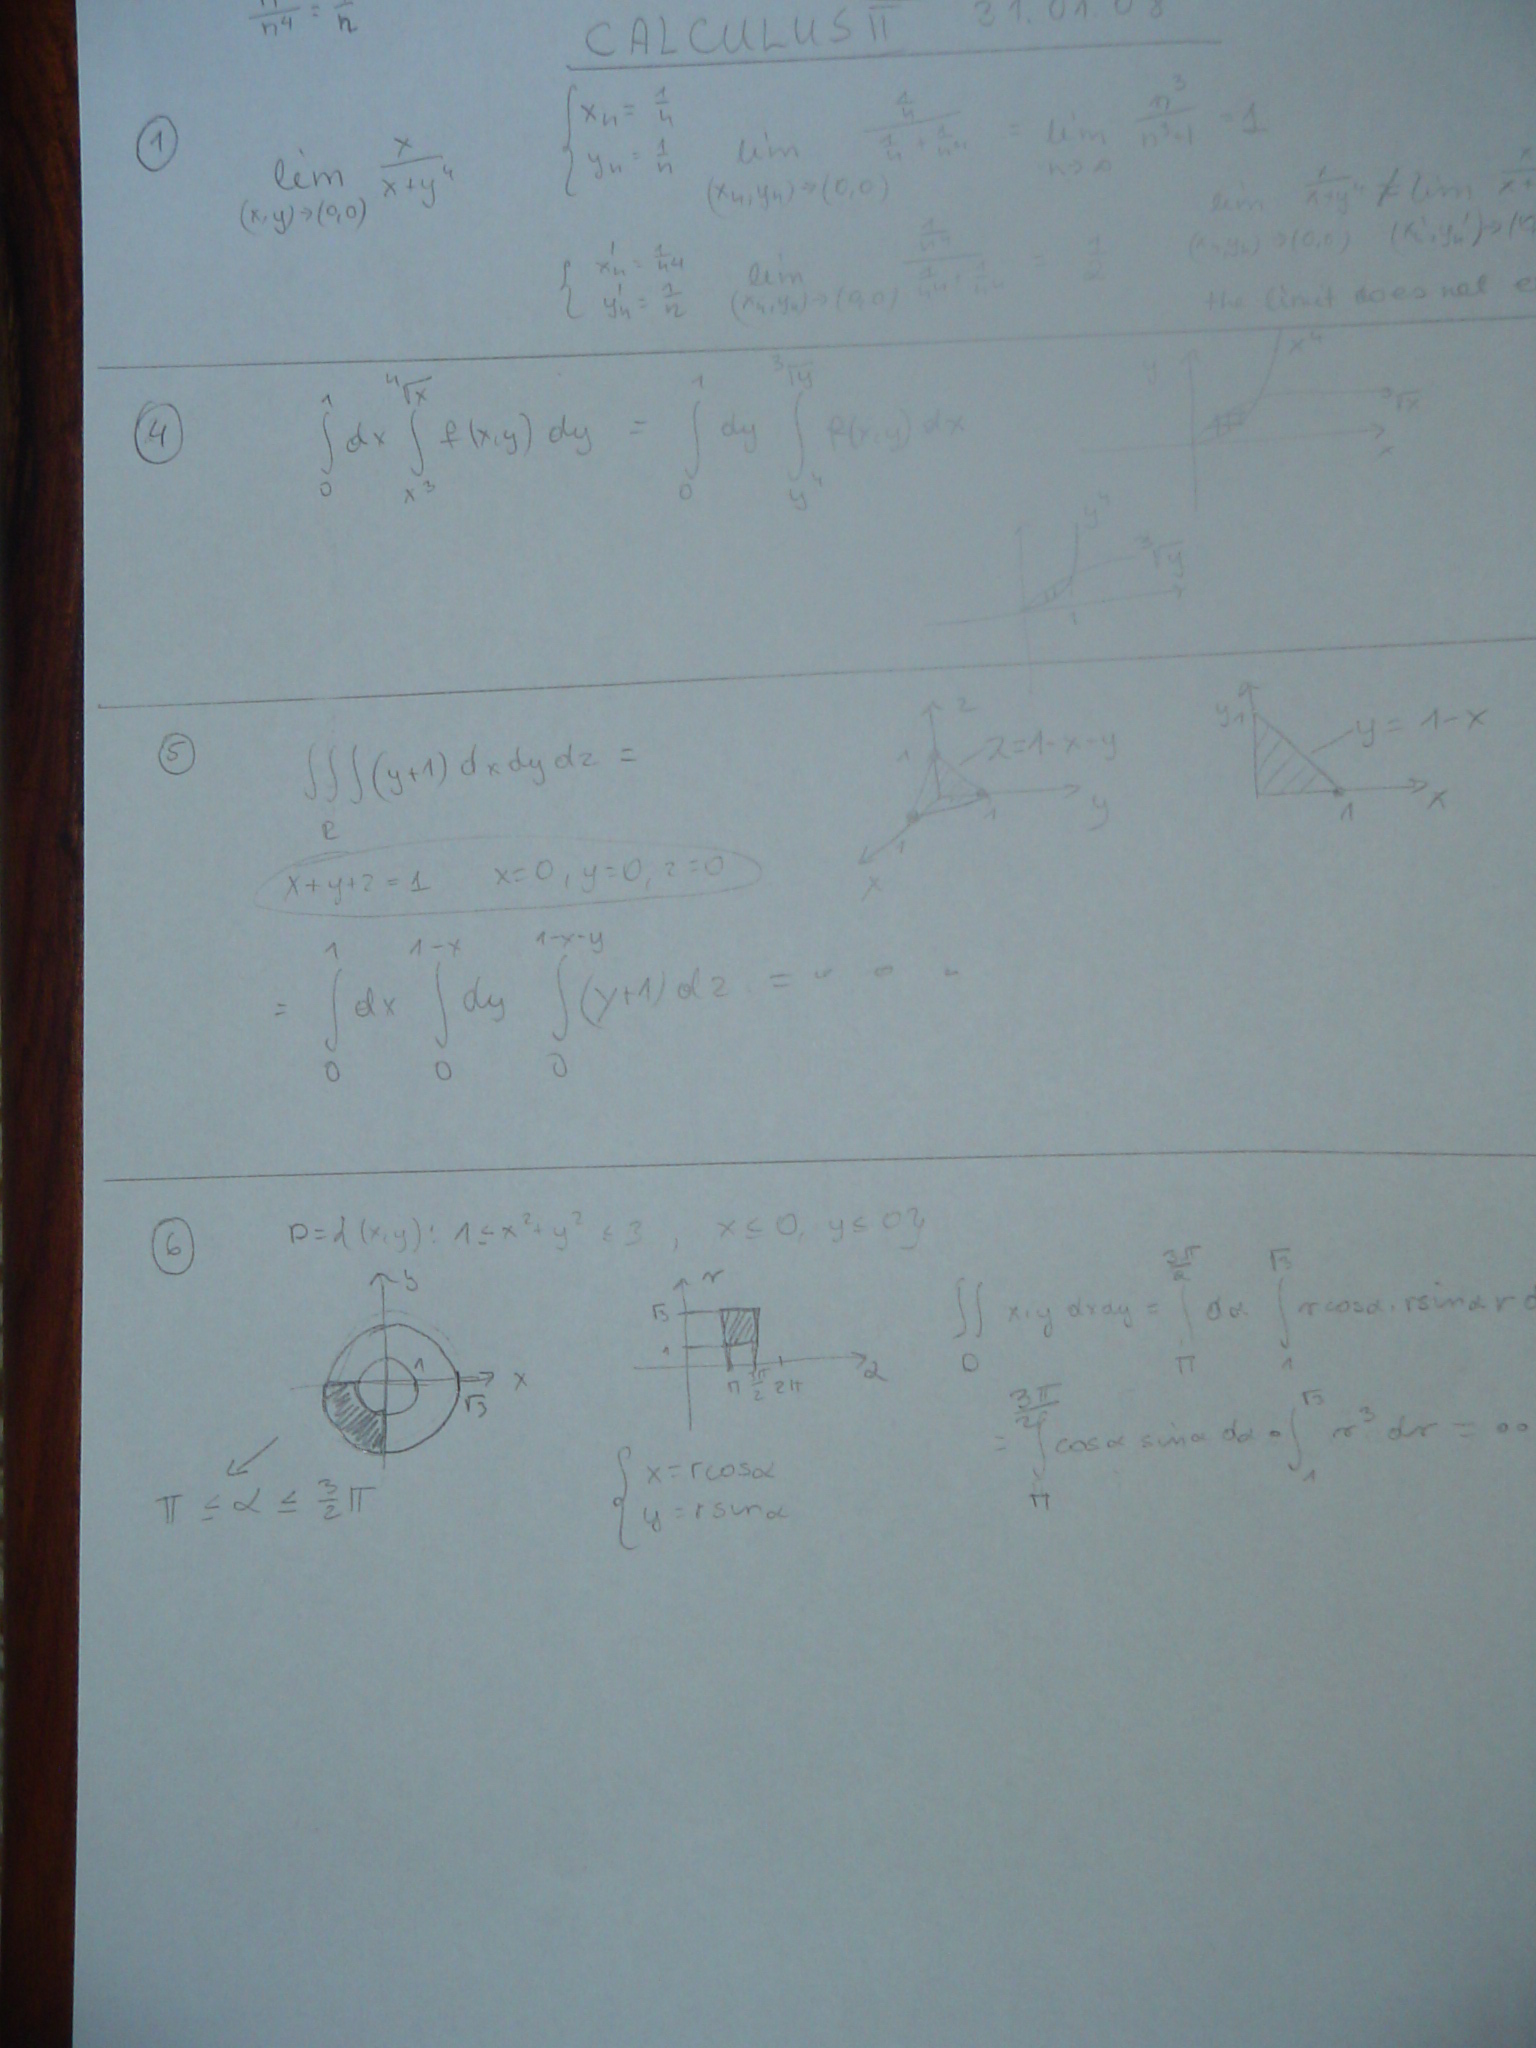 n⁴ = 1/n
CALCULUS II 31.01.08
① lim (x,y)→(0,0) x/(x+y⁴)
{ xₙ = 1/n
yₙ = 1/n
lim (xₙ,yₙ)→(0,0) (1/n)/(1/n + 1/n⁴) = lim n→∞ n³/(n³+1) = 1
{ xₙ' = 1/n⁴
yₙ' = 1/n
lim (xₙ,yₙ)→(0,0) (1/n⁴)/(1/n⁴ + 1/n⁴) = 1/2
lim (xₙ,yₙ)→(0,0) x/(x+y⁴) ≠ lim (xₙ',yₙ')→
the limit does not
④ ∫₀¹ dx ∫_{x³}^{⁴√x} f(x,y) dy = ∫₀¹ dy ∫_{y⁴}^{³√y} f(x,y) dx
y x⁴ ³√x x
y⁴ ³√y 1
⑤ ∫∫∫_R (y+1) dx dy dz =
x+y+z = 1 x=0, y=0, z=0
z 1 z=1-x-y 1 y 1 x
y 1 y = 1-x 1 x
= ∫₀¹ dx ∫₀^{1-x} dy ∫₀^{1-x-y} (y+1) dz = . . .
⑥ D={(x,y): 1 ≤ x²+y² ≤ 3, x ≤ 0, y ≤ 0}
y 1 x √3
π ≤ α ≤ 3/2 π
r √3 1 π 3π/2 2π α
{ x = r cosα
y = r sinα
∫∫_D x·y dx dy = ∫_π^{3π/2} dα ∫₁^{√3} r cosα · r sinα r
= ∫_π^{3π/2} cosα sinα dα · ∫₁^{√3} r³ dr = ..